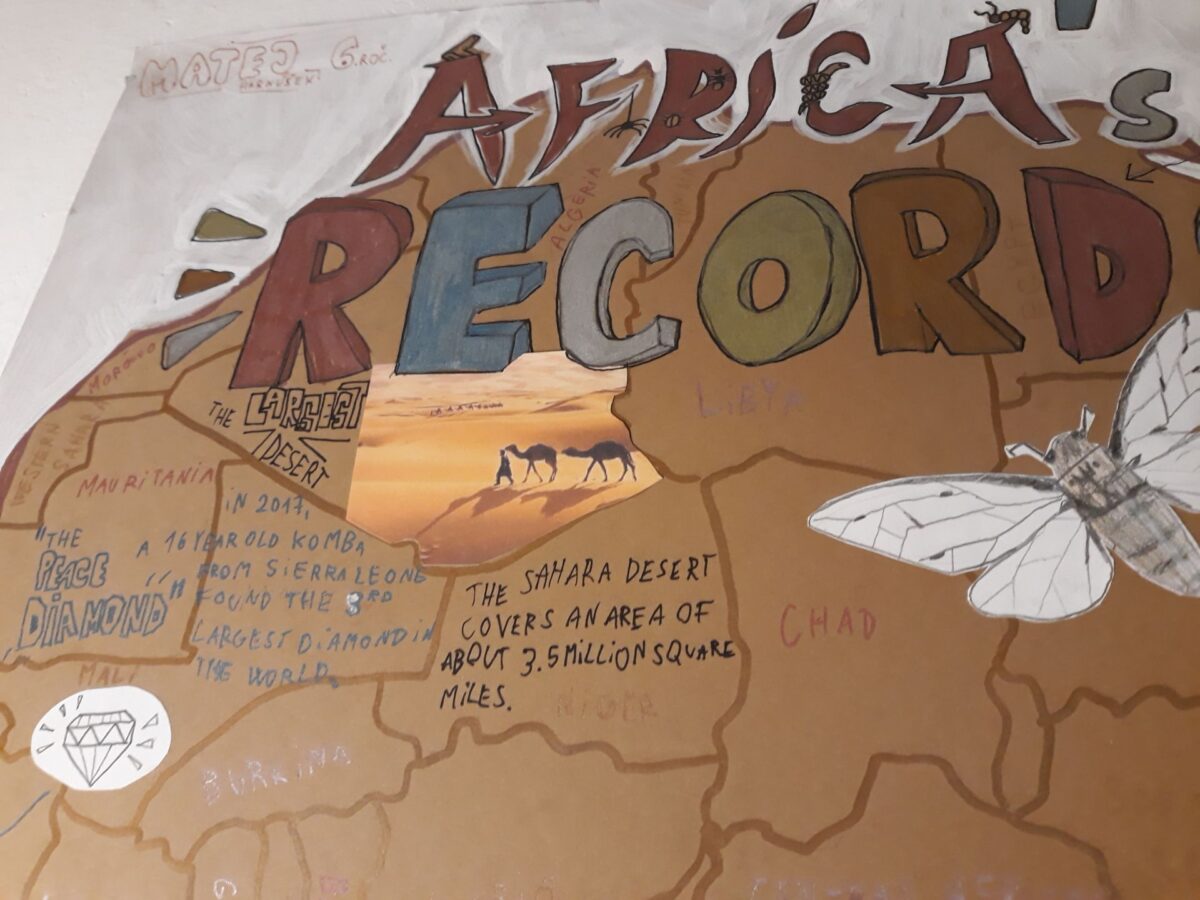 MATEJ 6.ROČ.
AFRICA's
RECORD
ALGERIA
MOROCCO
WESTERN
SAHARA
THE LARGEST
DESERT
LIBYA
MAURITANIA
"THE
PEACE
DIAMOND"
IN 2017,
A 16 YEAR OLD KOMBA
FROM SIERRA LEONE
FOUND THE 3RD
LARGEST DIAMOND IN
THE WORLD.
THE SAHARA DESERT
COVERS AN AREA OF
ABOUT 3.5 MILLION SQUARE
MILES.
CHAD
MALI
NIGER
BURKINA